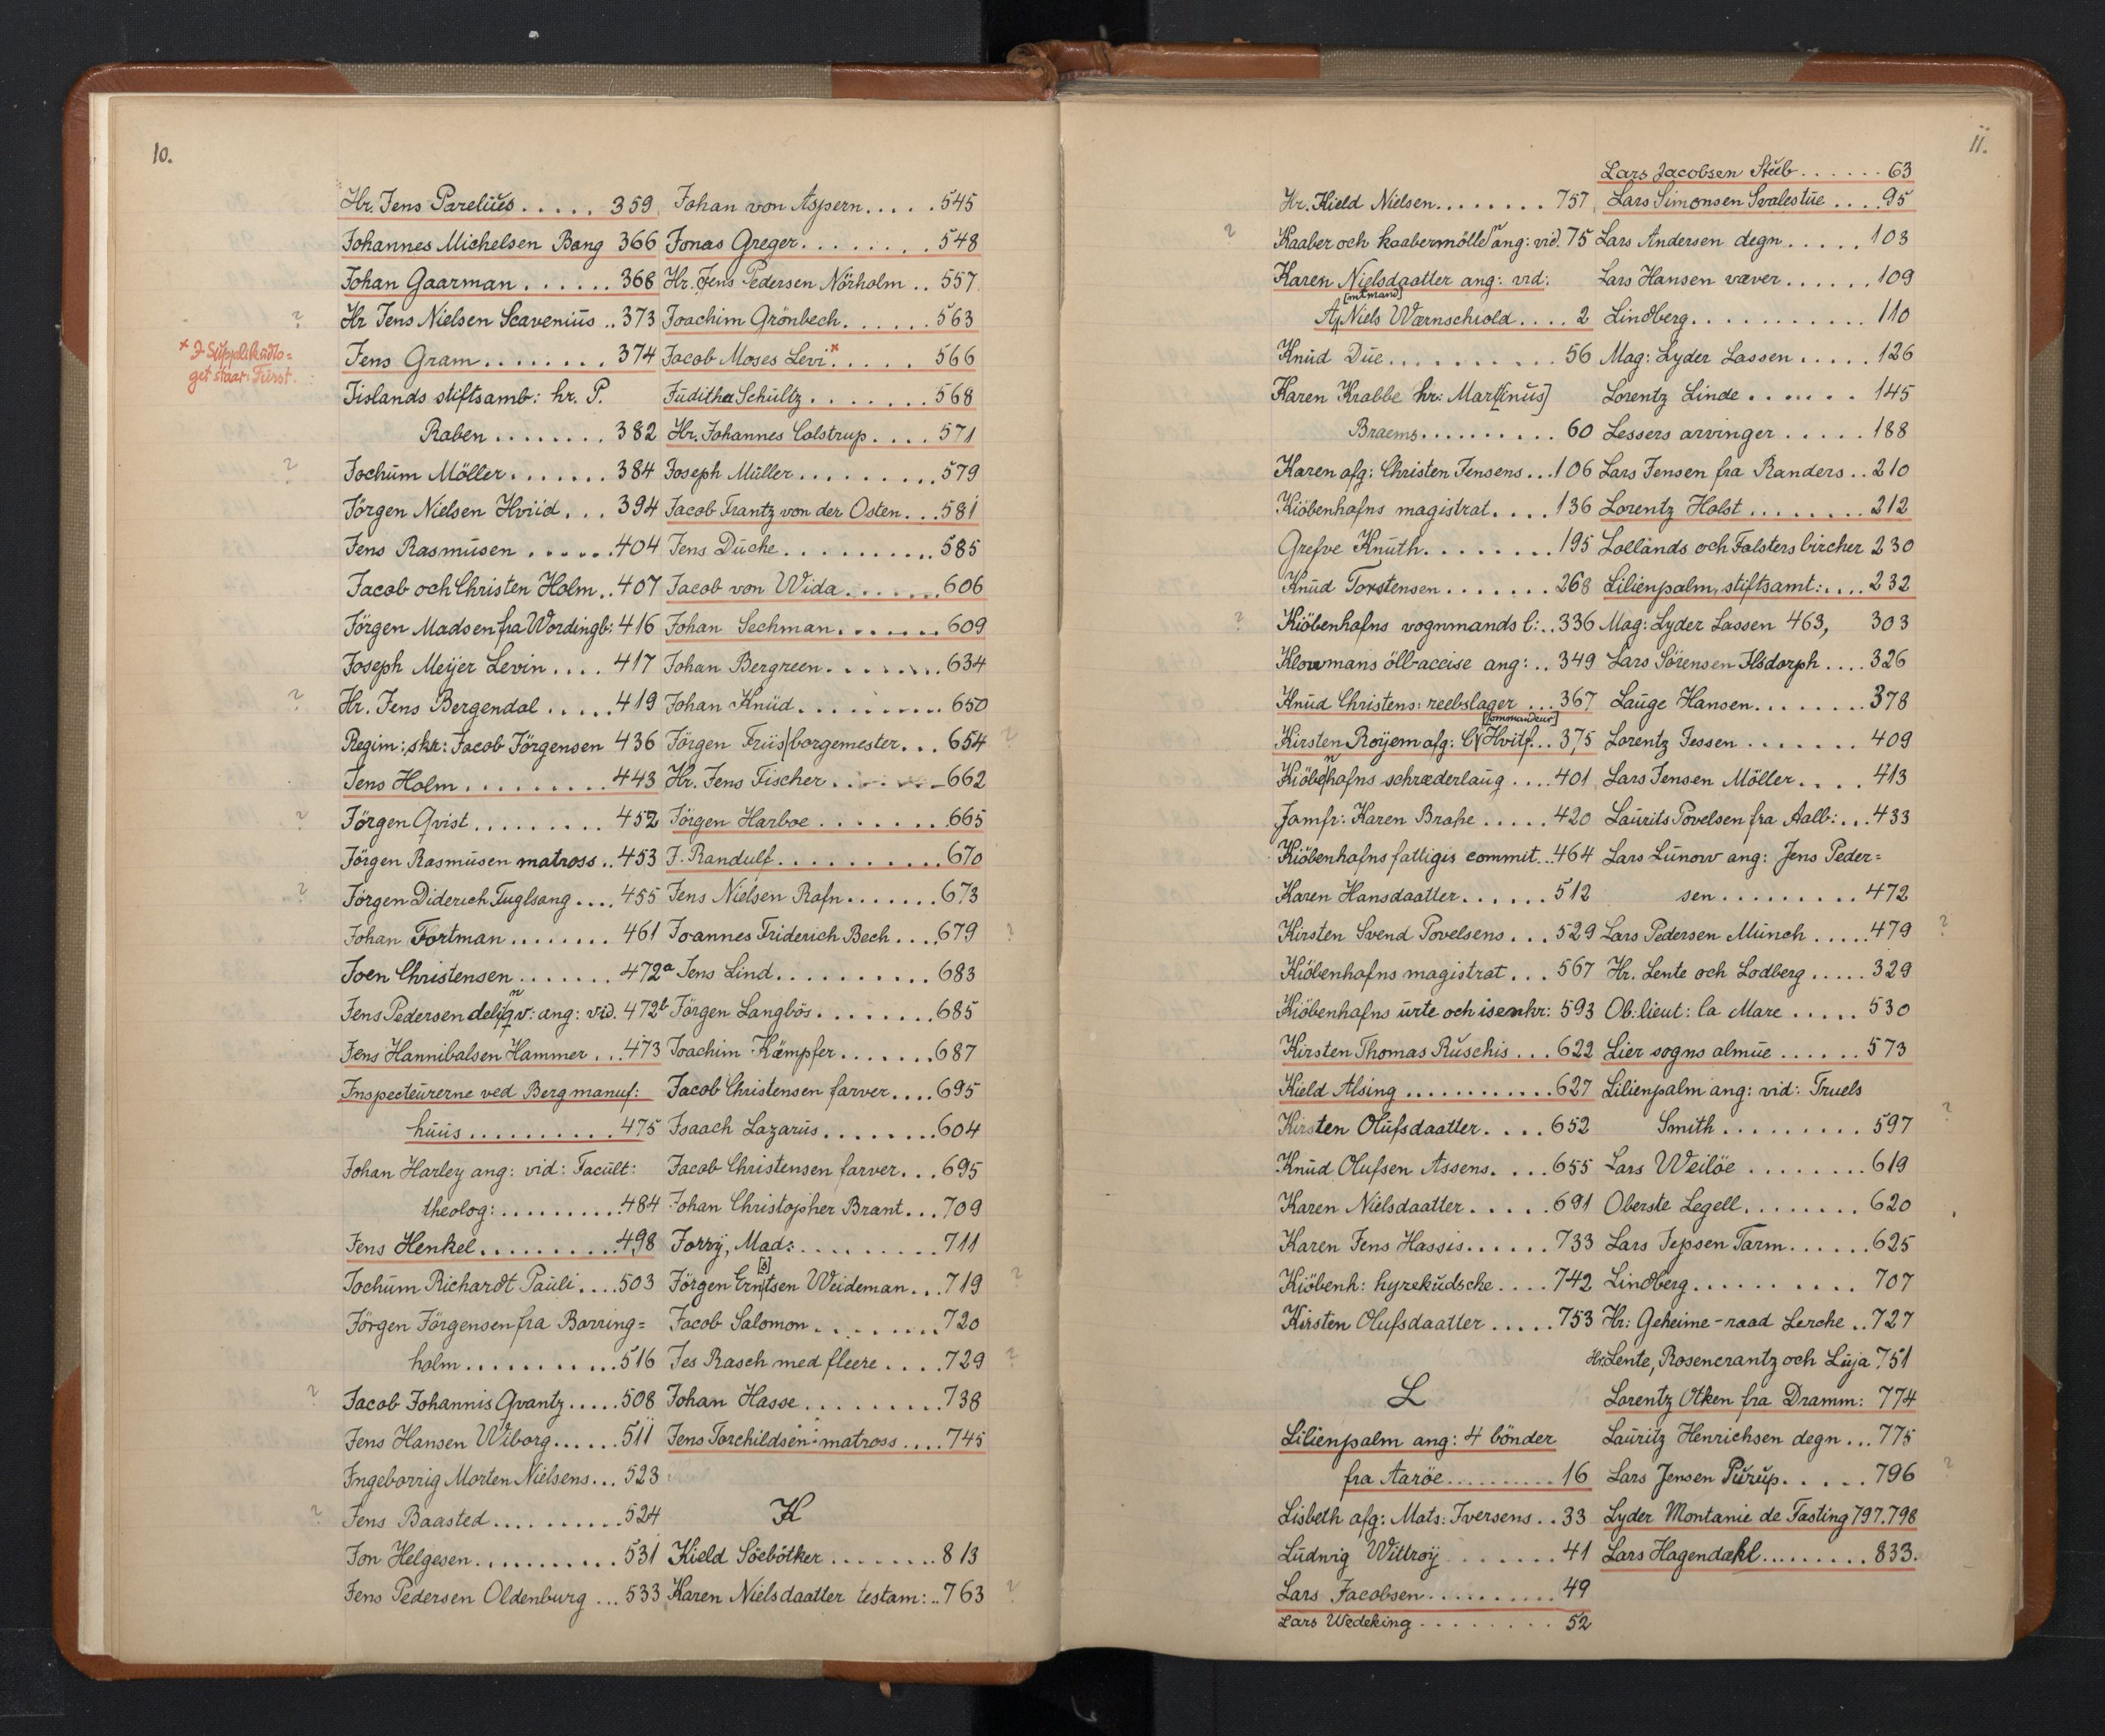 10.
Hr. Jens Parelius ..... 359
Johannes Michelsen Bang 366
Johan Gaarman ...... 368
? Hr Jens Nielsen Scavenius .. 373
× I Supplikadto=
get staar: Fürst.
Jens Gram ........ 374
Iislands stiftsamb: hr. P.
Raben ........ 382
? Jochum Möller ....... 384
Jörgen Nielsen Hviid ... 394
Jens Rasmusen ...... 404
Jacob och Christen Holm .. 407
Jörgen Madsen fra Wordingb: 416
Joseph Meijer Levin .... 417
? Hr. Jens Bergendal ..... 419
Regim: skr: Jacob Jörgensen 436
Jens Holm ......... 443
? Jörgen Qvist ......... 452
Jörgen Rasmusen matross .. 453
? Jörgen Diderich Fuglsang .... 455
Johan Fortman ........ 461
Joen Christensen ....... 472a
Jens Pedersen delinqv: ang: vid. 472b
Jens Hannibalsen Hammer ... 473
Inspecteurerne ved Bergmanuf:
huus .......... 475
Johan Harley ang: vid: Facult:
theolog: ......... 484
Jens Henkel .......... 498
Jochum Richardt Pauli .... 503
Jörgen Jörgensen fra Borring=
holm ........... 516
? Jacob Johannis Qvantz ..... 508
Jens Hansen Wiborg ...... 511
Ingeborrig Morten Nielsens ... 523
? Jens Baasted .......... 524
Jon Helgesen ........... 531
Jens Pedersen Oldenburg ... 533
Johan von Aspern ..... 545
Jonas Greger ........ 548
Hr. Jens Pedersen Nörholm .. 557
Joachim Grönbech ...... 563
Jacob Moses Levi × ..... 566
Juditha Schultz ....... 568
Hr. Johannes Colstrup .... 571
Joseph Müller ......... 579
Jacob Frantz von der Osten ... 581
Jens Duche .......... 585
Jacob von Wida ....... 606
Johan Sechman ....... 609
Johan Bergreen ........ 634
Johan Knud ......... 650
Jörgen Friis borgemester ... 654 ?
Hr. Jens Fischer ....... 662
Jörgen Harboe ........ 665
J. Randulf .......... 670
Jens Nielsen Rafn ....... 673
Joannes Friderich Bech .... 679 ?
Jens Lind .......... 683
Jörgen Langbös ........ 685
Joachim Kämpfer ....... 687
Jacob Christensen farver .... 695
Isaach Lazarus ........ 604
Jacob Christensen farver ... 695
Johan Christopher Brant ... 709
Jorry, Mad: ......... 711
Jörgen Ern[s]tsen Weideman ... 719 ?
Jacob Salomon ........ 720
Jes Rasch med fleere .... 729 ?
Johan Hasse ......... 738
Jens Torchildsen matross .... 745
K
Kield Söebötker ........ 813
Karen Nielsdaatter testam: .. 763 ?
11.
Hr. Kield Nielsen ........ 757
? Kaaber och kaabermöllen ang: vid. 75
Karen Nielsdaatter ang: vid:
A[mtmand] Niels Wærnschiold .... 2
Knud Due .......... 56
Karen Krabbe hr: Mar[tinus]
Braems .......... 60
Karen afg: Christen Jensens ... 106
Kiöbenhafns magistrat .... 136
Grefve Knuth ........ 195
Knud Torstensen ....... 268
? Kiöbenhafns vognmands l: .. 336
Klowmans öll-accise ang: .. 349
Knud Christens: reebslager ... 367
Kirsten Roijem afg: C[ommandeur] Hvitf... 375
Kiöbenhafns schræderlaug .... 401
Jomfr: Karen Brahe ..... 420
Kiöbenhafns fattigis commit... 464
Karen Hansdaatter ...... 512
Kirsten Svend Povelsens ... 529
Kiöbenhafns magistrat ... 567
Kiöbenhafns urte och isenkr: 593
Kirsten Thomas Ruschis ... 622
Kield Alsing ............ 627
Kirsten Olufsdaatter .... 652
Knud Olufsen Assens .... 655
Karen Nielsdaatter ..... 691
Karen Jens Hassis ...... 733
Kiöbenh: hyrekudsche .... 742
Kirsten Olufsdaatter ..... 753
L
Lilienpalm ang: 4 bönder
fra Aaröe ......... 16
Lisbeth afg: Mats: Iversens .. 33
Ludwig Wittroij ....... 41
Lars Jacobsen .......... 49
Lars Wedeking ........ 52
Lars Jacobsen Stub ...... 63
Lars Simonsen Svalestue .... 95
Lars Andersen degn ..... 103
Lars Hansen væver ...... 109
Lindberg ........... 110
Mag: Lyder Lassen ..... 126
Lorentz Linde ....... 145
Lessers arvinger ..... 188
Lars Jensen fra Randers .. 210
Lorentz Holst ........ 212
Lollands och Falsters bircher 230
Lilienpalm, stiftsamt: .... 232
Mag: Lyder Lassen 463, 303
Lars Sörensen Ilsdorph .... 326
Lauge Hansen ........ 378
Lorentz Jessen ....... 409
Lars Jensen Möller .... 413
Laurits Povelsen fra Aalb: ... 433
Lars Lunow ang: Jens Peder=
sen ......... 472
Lars Pedersen Munch ..... 479 ?
Hr. Lente och Lodberg ..... 329
Ob: lieut: la Mare ..... 530
Lier sogns almue ...... 573
Lilienpalm ang: vid: Truels
Smith ......... 597 ?
Lars Weilöe ........ 619
Oberste Legell ........ 620
Lars Jepsen Tarm ...... 625
Lindberg .......... 707
Hr: Geheime-raad Lerche .. 727
Hr. Lente, Rosencrantz och Luja 751
Lorentz Otken fra Dramm: 774
Lauritz Henrichsen degn ... 775
Lars Jensen Purup ..... 796 ?
Lyder Montanie de Tasting 797. 798
Lars Hagendahl ......... 833.